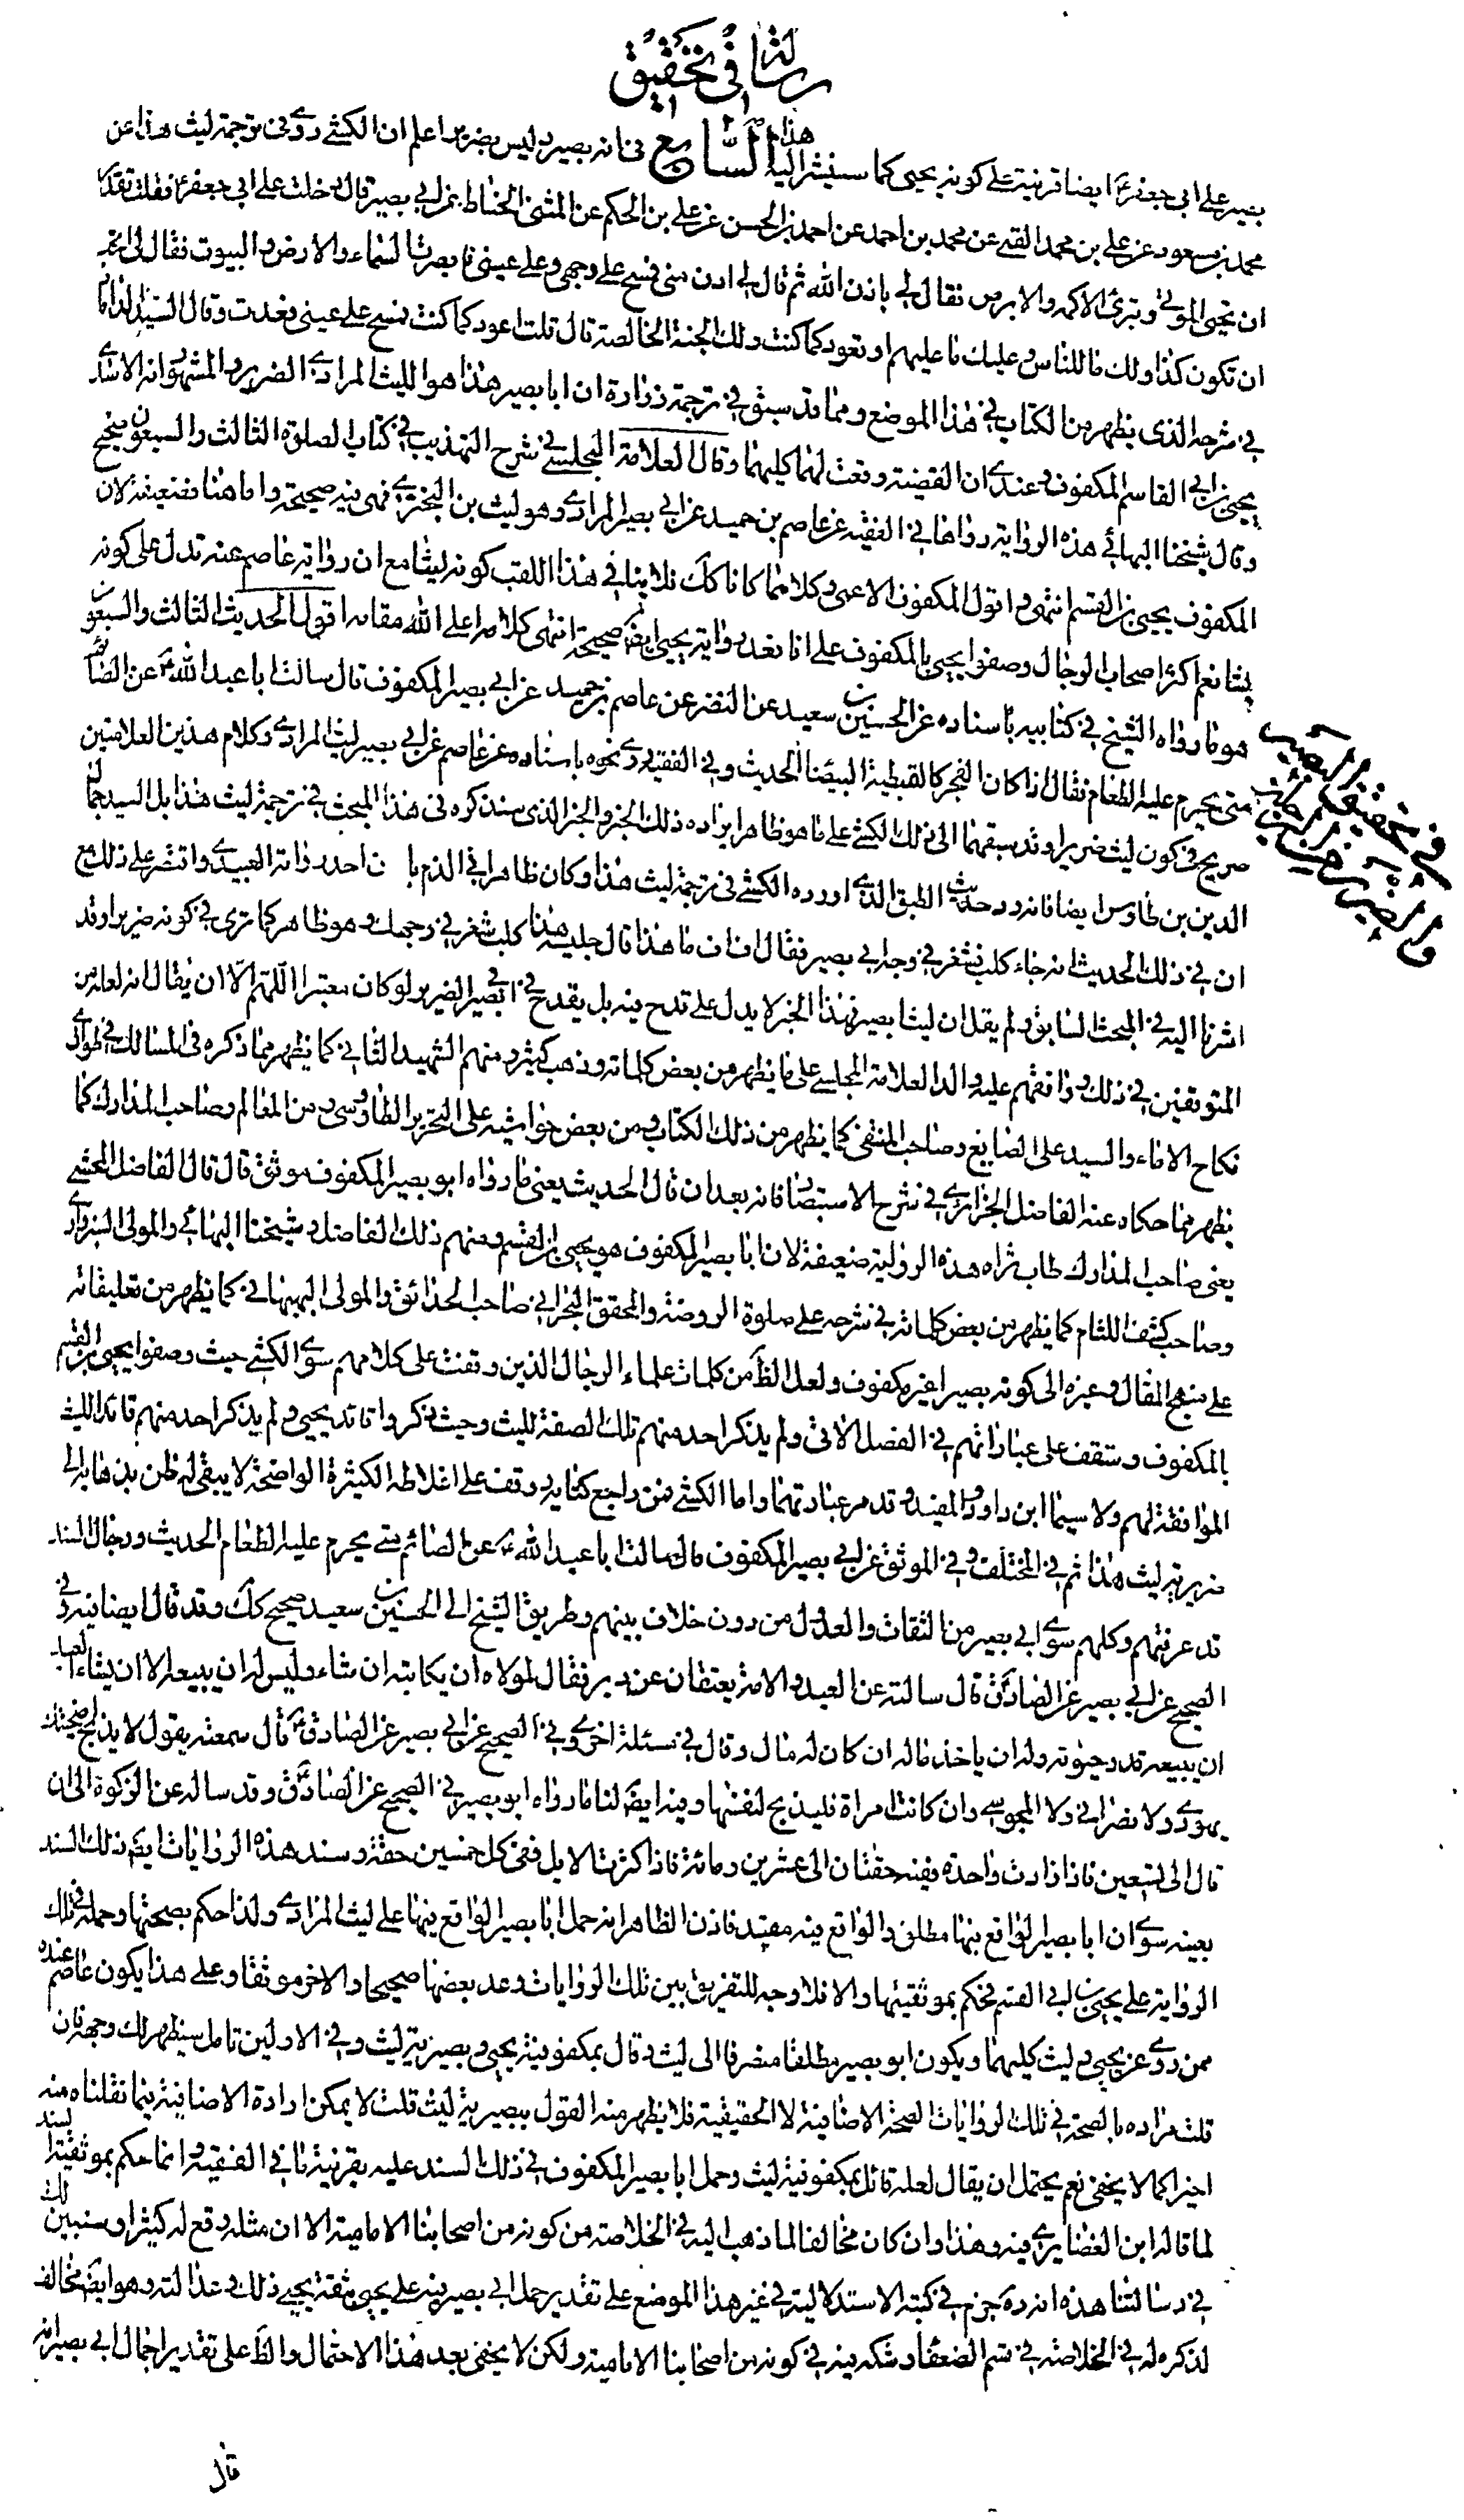 رسالة في تحقيق
بصير على ابي جعفر ع ايضا قرينة على كونه يحيى كما سنشير اليه هذا السابع في انه بصير وليس بضرير اعلم ان الكشي روى في ترجمة ليث هذا عن
محمد بن مسعود عن علي بن محمد القمي عن محمد بن احمد عن احمد بن الحسن عن علي بن الحكم عن المثنى الحناط عن ابي بصير قال دخلت على ابي جعفر ع فقلت تقدر
ان تحيى الموتى وتبرئ الاكمه والابرص فقال لي باذن الله ثم قال لي ادن منى فمسح على وجهي وعلى عيني فابصرت السماء والارض والبيوت فقال لي اتحب
ان تكون كذا ولك ما للناس وعليك ما عليهم او تعود كما كنت ولك الجنة الخالصة قال قلت اعود كما كنت فمسح على عيني فعدت وقال السيد الداماد
في شرحه الذي يظهر من الكتاب في هذا الموضع ومما قد سبق في ترجمة زرارة ان ابا بصير هذا هو الليث المرادي الضرير والمشهور انه الاسدي
يحيى بن ابي القاسم المكفوف وعندي ان القضية وقعت لهما كليهما وقال العلامة المجلسي في شرح التهذيب في كتاب الصلوة الثالث والسبعون صحيح
وقال شيخنا البهائي هذه الرواية رواها في الفقيه عن عاصم بن حميد عن ابي بصير المرادي وهو ليث بن البختري فهي فيه صحيحة واما هنا فضعيفة لان
المكفوف يحيى بن القسم انتهى واقول المكفوف الاعمى وكلاهما كانا كك فلا ينافي هذا اللقب كونه ليثا مع ان رواية عاصم عنه تدل على كونه
ليثا نعم اكثر اصحاب الرجال وصفوا يحيى بالمكفوف على انا نعد رواية يحيى ايض صحيحة انتهى كلامه اعلى الله مقامه اقول الحديث الثالث والسبعون
هو ما رواه الشيخ في كتابيه باسناده عن الحسين بن سعيد عن النضر عن عاصم بن حميد عن ابي بصير المكفوف قال سالت ابا عبد الله ع عن الصائم
متى يحرم عليه الطعام فقال اذا كان الفجر كالقبطية البيضاء الحديث وفي الفقيه روى نحوه باسناده عن عاصم عن ابي بصير ليث المرادي وكلام هذين العلامتين
صريح في كون ليث ضريرا وقد سبقهما الى ذلك الكشي على ما هو ظاهر ايراده ذلك الخبر والخبر الذي سنذكره في هذا المبحث في ترجمة ليث هذا بل السيد جمال
الدين بن طاوس ايضا فانه رد حديث الطبق الذي اورده الكشي في ترجمة ليث هذا وكان ظاهرا في الذم با ن احد رواته العبيدي واقتصر على ذلك مع
ان في ذلك الحديث انه جاء كلب فشغر في وجه ابي بصير فقال اف اف ما هذا قال جليسه هذا كلب شغر في وجهك وهو ظاهر كما ترى في كونه ضريرا وقد
اشرنا اليه في المبحث السابق ولم يقل ان ليثا بصير فهذا الخبر لا يدل على قدح فيه بل يقدح في ابي بصير الضرير لو كان معتبرا اللهم الا ان يقال انه لعله من
المتوقفين في ذلك ووافقهم عليه والد العلامة المجلسي على ما يظهر من بعض كلماته وذهب كثير ومنهم الشهيد الثاني كما يظهر مما ذكره في المسالك في طوارئ
نكاح الاماء والسيد على الصايغ وصاحب المنتقى كما يظهر من ذلك الكتاب ومن بعض حواشيه على التحرير الطاوسي ومن المعالم وصاحب المدارك كما
يظهر مما حكاه عنه الفاضل الجزائري في شرح الاستبصار فانه بعد ان قال الحديث يعنى ما رواه ابو بصير المكفوف موثق قال قال الفاضل المحشي
يعنى صاحب المدارك طاب ثراه هذه الرواية ضعيفة لان ابا بصير المكفوف هو يحيى بن القسم ومنهم ذلك الفاضل وشيخنا البهائي والمولى السبزواري
وصاحب كشف اللثام كما يظهر من بعض كلماته في شرحه على صلوة الروضة والمحقق البحراني صاحب الحدائق والمولى البهبهاني كما يظهر من تعليقاته
على منهج المقال وغيره الى كونه بصيرا غير مكفوف ولعل الظ من كلمات علماء الرجال الذين وقفت على كلامهم سوى الكشي حيث وصفوا يحيى بن القسم
بالمكفوف وستقف على عباراتهم في الفصل الاتي ولم يذكر احد منهم تلك الصفة لليث وحيث ذكروا قائد يحيى ولم يذكر احد منهم قائد الليث
الموافقة لهم ولا سيما ابن داود والمفيد وقد مر عبارتهما واما الكشي فمن راجع كتابه ووقف على اغلاطه الكثيرة الواضحة لا يبقى له ظن بذهابه الى
ضريرية ليث هذا ثم في المختلف وفي الموثق عن ابي بصير المكفوف قال سالت ابا عبد الله ع عن الصائم متى يحرم عليه الطعام الحديث ورجال السند
قد عرفتهم وكلهم سوى ابي بصير من الثقات والعدول من دون خلاف بينهم وطريق الشيخ الى الحسين بن سعيد صحيح كك وقد قال ايضا فيه وفي
الصحيح عن ابي بصير عن الصادق ع قال سالته عن العبد والامة يعتقان عن دبر فقال لمولاه ان يكاتبه ان شاء وليس له ان يبيعه الا ان يشاء العبد
ان يبيعه قدر حيوته وله ان ياخذ ماله ان كان له مال وقال في مسئلة اخرى وفي الصحيح عن ابي بصير عن الصادق ع قال سمعته يقول لا يذبح اضحيتك
يهودي ولا نصراني ولا المجوسي وان كانت امراة فليذبح لنفسها وفيه ايض لنا ما رواه ابو بصير في الصحيح عن الصادق ع وقد ساله عن الزكوة الى ان
قال الى تسعين فاذا زادت واحدة ففيه حقتان الى عشرين ومائة فاذا كثرت الابل ففى كل خمسين حقة وسند هذه الروايات ايض ذلك السند
بعينه سوى ان ابا بصير الواقع فيها مطلق والواقع فيه مقيد فاذن الظاهر انه حمل ابا بصير الواقع فيها على ليث المرادي ولذا حكم بصحتها وحمله في تلك
الرواية على يحيى بن ابي القسم فحكم بموثقيتها والا فلا وجه للتفريق بين تلك الروايات وعد بعضها صحيحا والاخر موثقا وعلى هذا يكون عاصم عنده
ممن روى عن يحيى وليث كليهما ويكون ابو بصير مطلقا منصرفا الى ليث وقال بمكفوفية يحيى وبصيرية ليث وفي الاولين تامل سيظهر لك وجهه فان
قلت مراده بالصحة في تلك الروايات الصحة الاضافية لا الحقيقية فلا يظهر منه القول ببصيرية ليث قلت لا يمكن ارادة الاضافية فيما نقلناه منه
اخيرا كما لا يخفى نعم يحتمل ان يقال لعله قائل بمكفوفية ليث وحمل ابا بصير المكفوف في ذلك السند عليه بقرينة ما في الفقيه وانما حكم بموثقية السند
لما قاله ابن الغضايري فيه وهذا وان كان مخالفا لما ذهب اليه في الخلاصة من كونه من اصحابنا الامامية الا ان مثله وقع له كثيرا وسنبين لك
في رسالتنا هذه انه ره جزم في كتبه الاستدلالية في غير هذا الموضع على تقدير حمل ابي بصير فيه على يحيى بثقة يحيى ذلك وعدالته وهو ايض مخالف
لذكره له في الخلاصة في قسم الضعفاء وشكه فيه في كونه من اصحابنا الامامية ولكن لا يخفى بعد هذا الاحتمال والظ على تقدير اجمال ابي بصير انه
قال